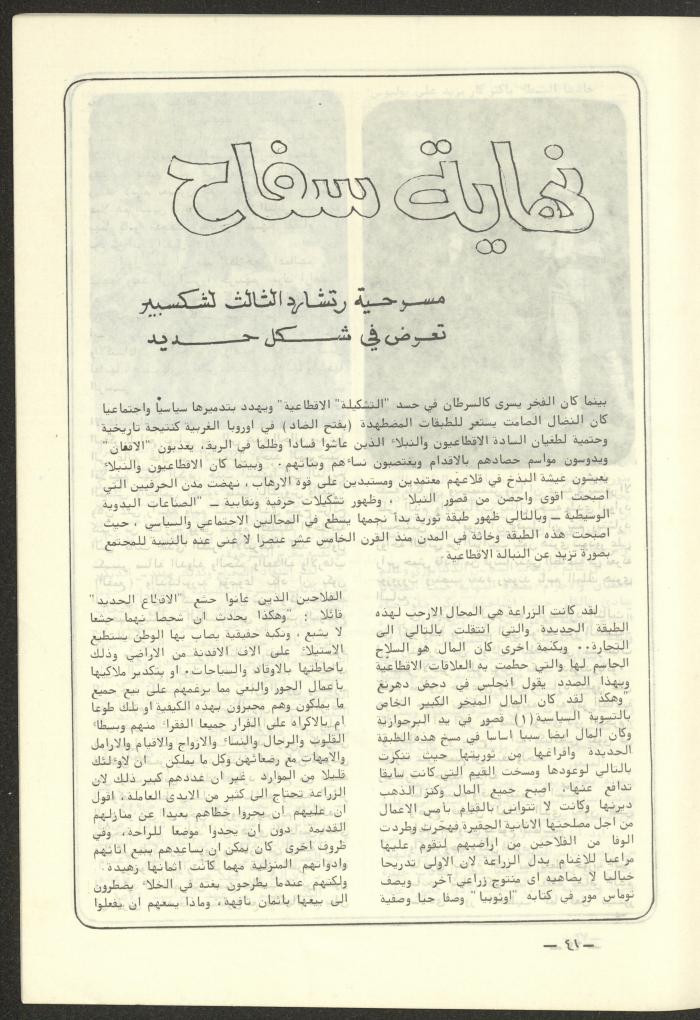 نهاية سفاح
مسرحية رتشارد الثالث لشكسبير
تعرض في شكل جديد
بينما كان الفخر يسرى كالسرطان في جسد "التشكيلة" الاقطاعية" ويهدد بتدميرها سياسياً واجتماعيا
كان النضال الصامت يستعر للطبقات المضطهدة (بفتح الضاد) في اوروبا الغربية كنتيجة تاريخية
وحتمية لطغيان السادة الاقطاعيون والنبلاء الذين عاثوا فسادا وظلما في الريف، يعذبون "الاقنان"
ويدوسون مواسم حصادهم بالاقدام ويغتصبون نساءهم وبناتهم . وبينما كان الاقطاعيون والنبلاء
يعيشون عيشة البذخ في قلاعهم معتمدين ومستبدين على قوة الارهاب ، نهضت مدن الحرفيين التي
اصبحت اقوى واحصن من قصور النبلاء ، وظهور تشكيلات حرفية ونقابية ــ "الصناعات اليدوية
الوسيطية ــ وبالتالى ظهور طبقة ثورية بدأ نجمها يسطع في المجالين الاجتماعي والسياسي ، حيث
اصبحت هذه الطبقة وخاثة في المدن منذ القرن الخامس عشر عنصرا لا غنى عنه بالنسبة للمجتمع
بصورة تزيد عن النبالة الاقطاعية
لقد كانت الزراعة هي المجال الارحب لهذه
الطبقة الجديدة والتي انتقلت بالتالي الى
التجارة٠٠ وبكلمة اخرى كان المال هو السلاح
الحاسم لها والتي حطمت به العلاقات الاقطاعية
وبهذا الصدد يقول انجلس في دحض دهرنغ
"وهكذ لقد كان المال المبخر الكبير الخاص
بالتسوية السياسية (١) قصور في يد البرجوازية
وكان المال ايضا سببا اساسا في مسخ هذه الطبقة
الجديدة وافراغها من ثوريتها حيث تنكرت
بالتالي لوعودها ومسخت القيم التي كانت سابقا
تدافع عنها، اصبح جميع المال وكنز الذهب
ديرنها وكانت لا تتوانى بالقيام بأمس الاعمال
من اجل مصلحتها الانانية الحقيرة فهجرت وطردت
الوفا من الفلاحين من اراضيهم لتقوم عليها
مراعيا للاغنام بدل الزراعة لان الاولى تدريحا
خياليا لا يضاهيه اى منتوج زراعي آخر . ويصف
توماس مور في كتابه "اوثوبيا" وصفا حيا وصفية
الفلاحين الذين عانوا جشع "الاقطاع الجديد"
قائلا : "وهكذا يحدث ان شخصا نهما جشعا
لا يشبع ، ونكبة حقيقية يصاب بها الوطن يستطيع
الاستيلاء على الاف الاقدنة من الاراضي وذلك
باحاطتها بالاوقاد والسياحات٠ او بتكدير ملاكيها
باعمال الجور والبغي مما يرغمهم على بيع جميع
ما يملكون وهم مجبرون بهذه الكيفية او تلك طوعا
ام بالاكراه على الفرار جميعا الفقراء منهم وبسطاء
القلوب والرجال والنساء والازواج والايتام والارامل
والامهات مع رضائعهن وكل ما يملكن ان لاولئك
قليلا من الموارد . غير ان عددهم كبير ذلك لان
الزراعة تحتاج الى كثير من الايدى العاملة ، اقول
ان عليهم ان يجروا خطاهم بعيدا عن منازلهم
القديمة دون ان يجدوا موضعا للراحة، وفي
ظروف اخرى كان يمكن ان يساعدهم ببيع اثاثهم
وادواتهم المنزلية مهما كانت اثمانها زهيدة .
ولكنهم عندما يطرحون بغتة في الخلاء يضطرون
الى بيعها باثمان تافهة، وماذا يسعهم ان يفعلوا
ــ ٤١ ــ